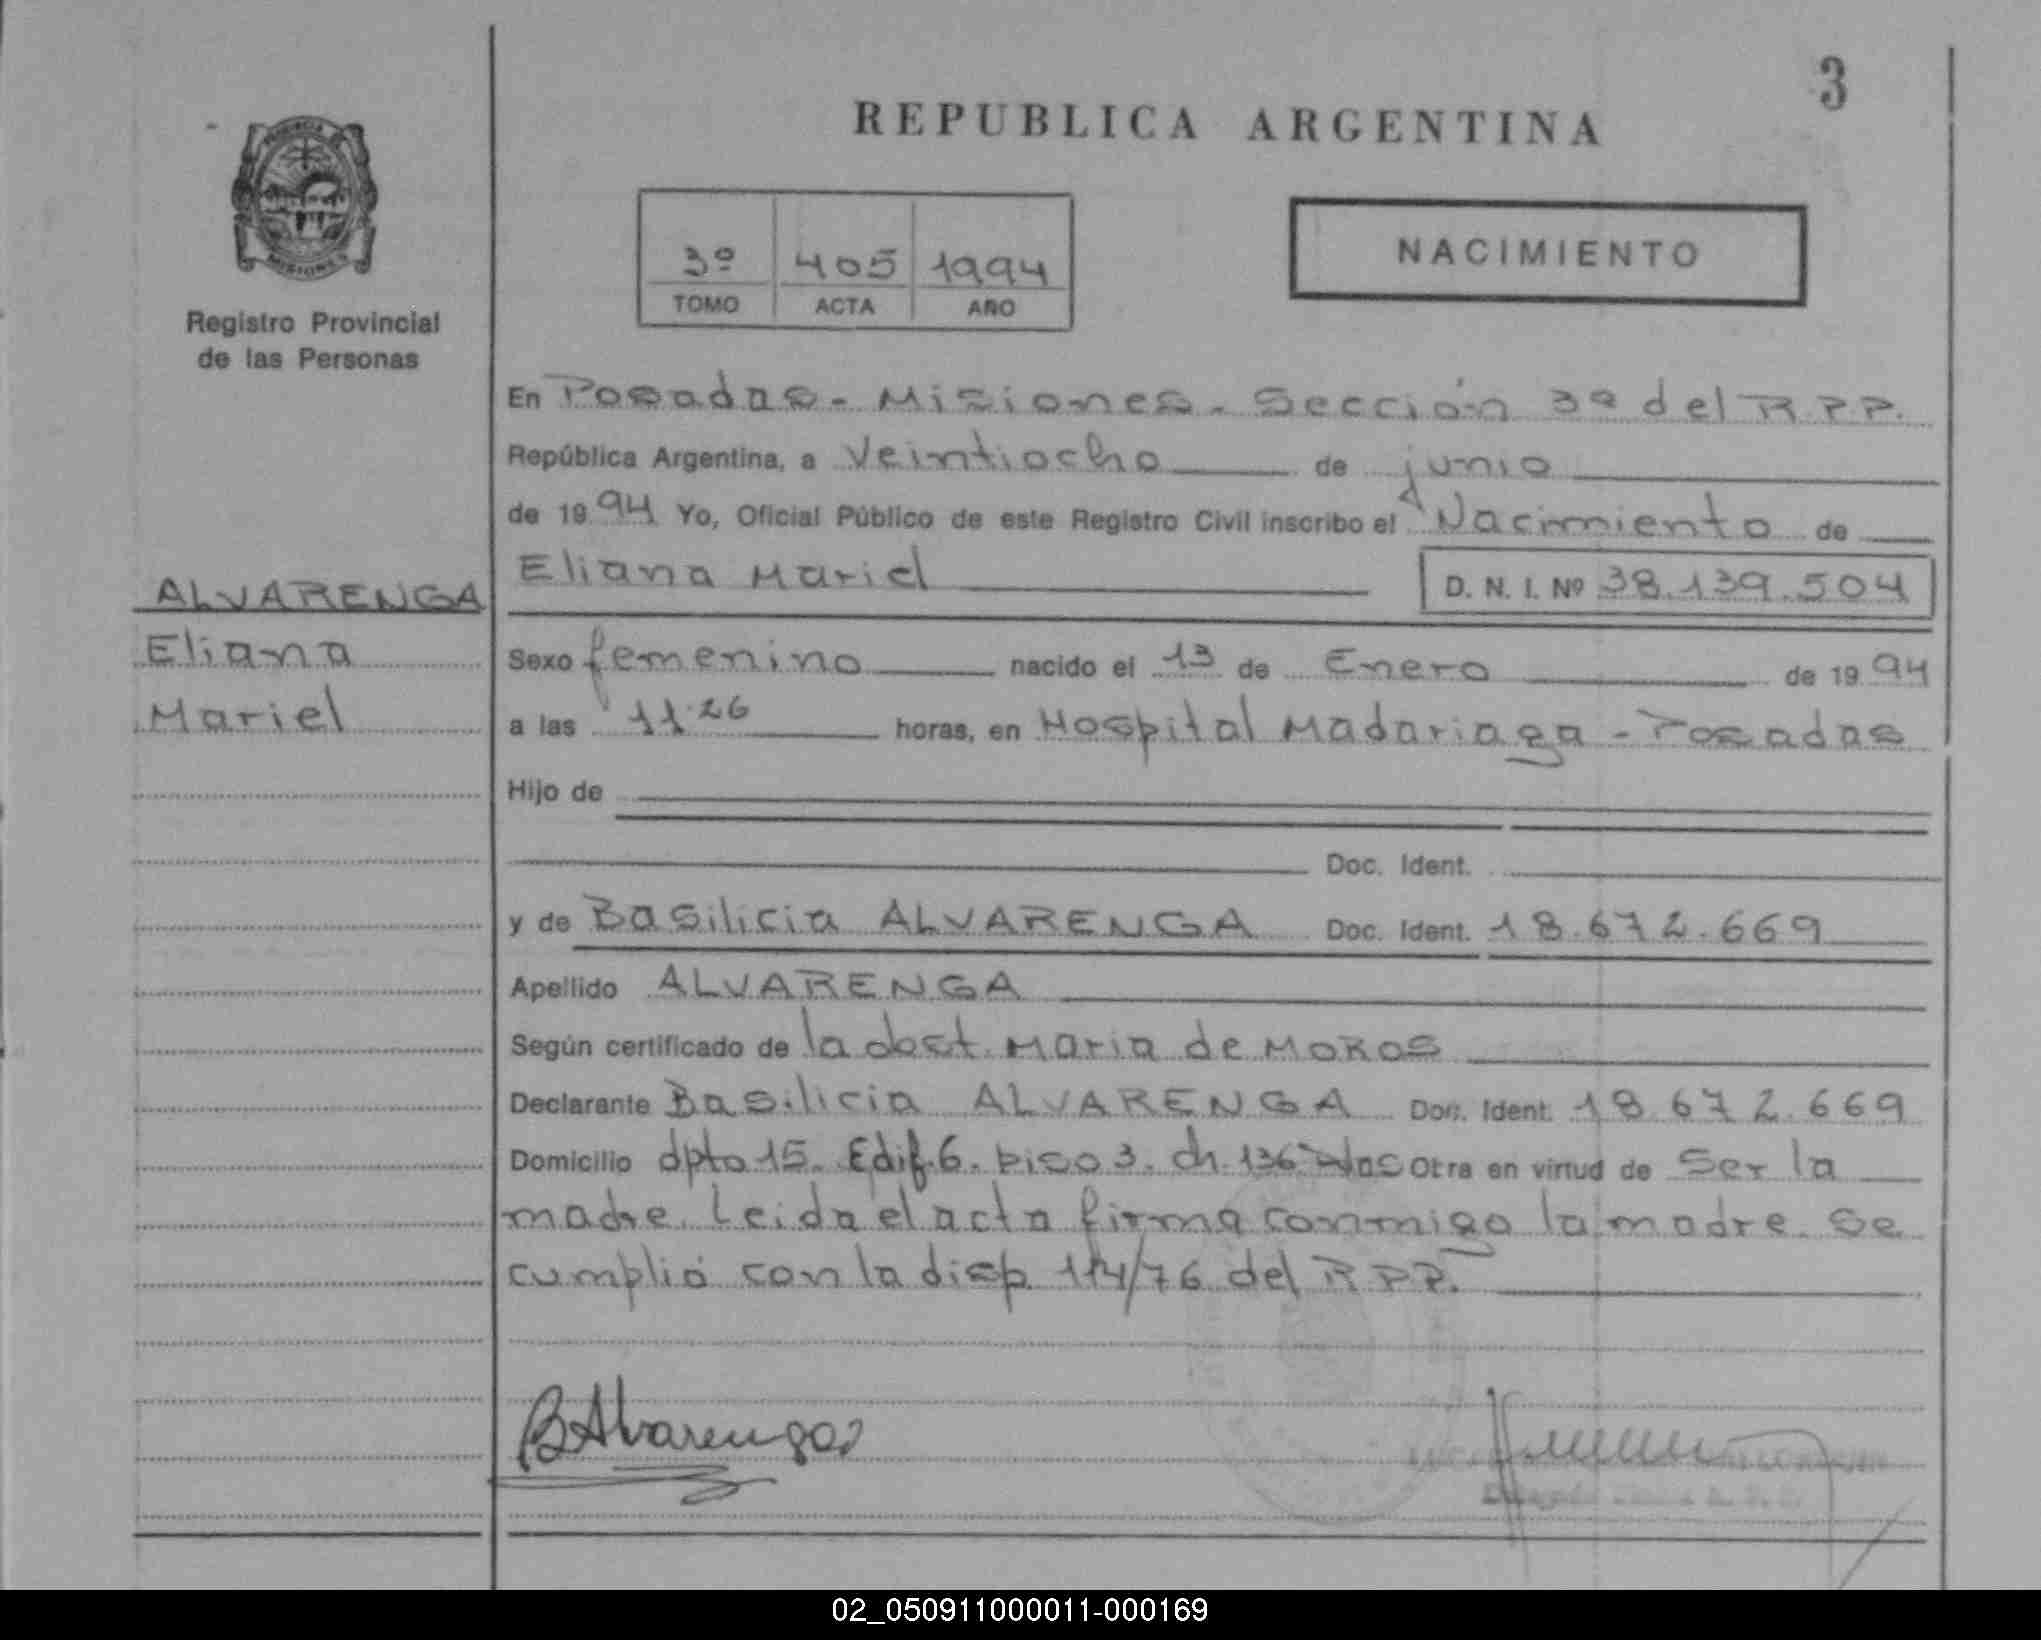 3
REPUBLICA ARGENTINA
PROVINCIA
MISIONES
Registro Provincial
de las Personas
3º 405 1994
TOMO ACTA AÑO
NACIMIENTO
En Posadas - Misiones - Sección 3ª del R.P.P.
República Argentina, a Veintiocho de junio
de 1994 Yo, Oficial Público de este Registro Civil inscribo el Nacimiento de
Eliana Mariel D. N. I. Nº 38.139.504
ALVARENGA
Eliana
Mariel
Sexo femenino nacido el 13 de Enero de 1994
a las 11.26 horas, en Hospital Madariaga - Posadas
Hijo de
Doc. Ident.
y de Basilicia ALVARENGA Doc. Ident. 18.672.669
Apellido ALVARENGA
Según certificado de la obst. Maria de MOROS
Declarante Basilicia ALVARENGA Doc. Ident. 18.672.669
Domicilio dpto 15. Edif. 6. piso 3. ch. 136 Otra en virtud de Ser la
madre. Leida el acta firma conmigo la madre. Se
cumplió con la disp. 114/76 del R.P.P.
BAlvarenga
02_050911000011-000169